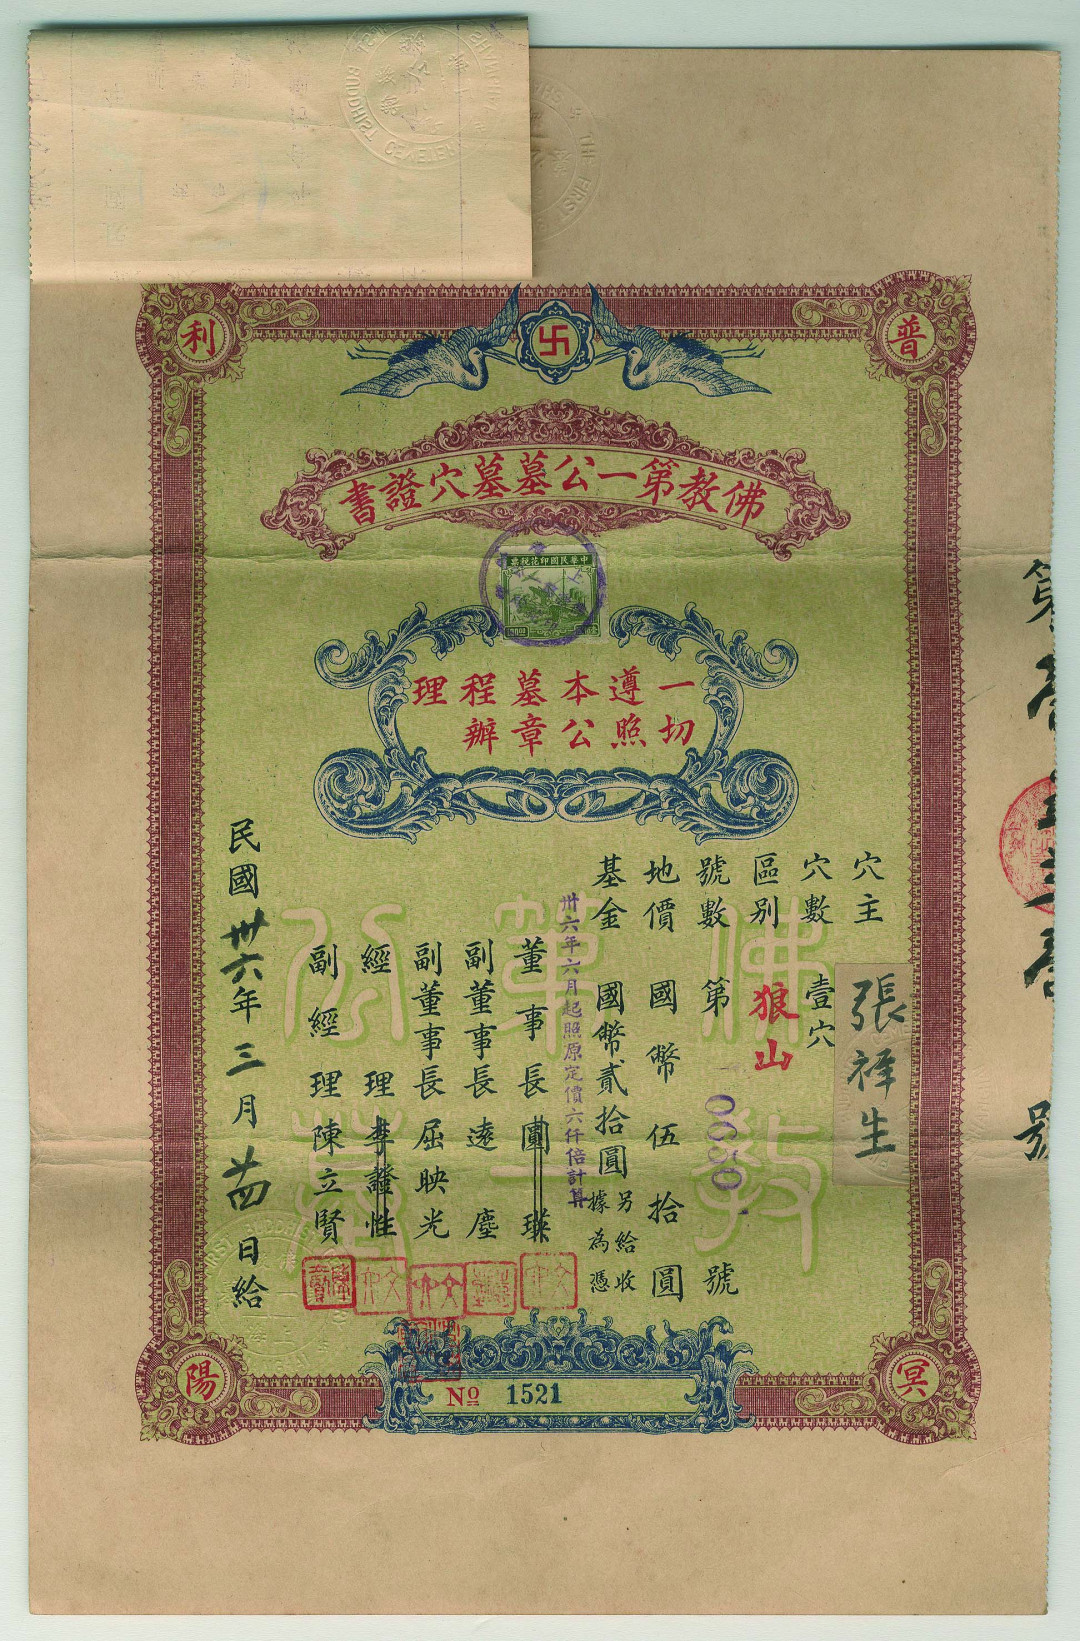 普利冥陽
佛教第一公墓墓穴證書
中華民國印花稅票
一切遵照本公墓章程辦理
穴主 張祥生
穴數 壹穴
區別 狼山
號數 第 0650 號
地價 國幣伍拾圓
基金 國幣貳拾圓 另給收據為憑
卅六年六月起照原定價六仟倍計算
董事長 圓瑛
副董事長 遠塵
副董事長 屈映光
經理 李證性
副經理 陳立賢
民國卅六年三月廿四日給
№ 1521
佛教第一公墓
THE FIRST